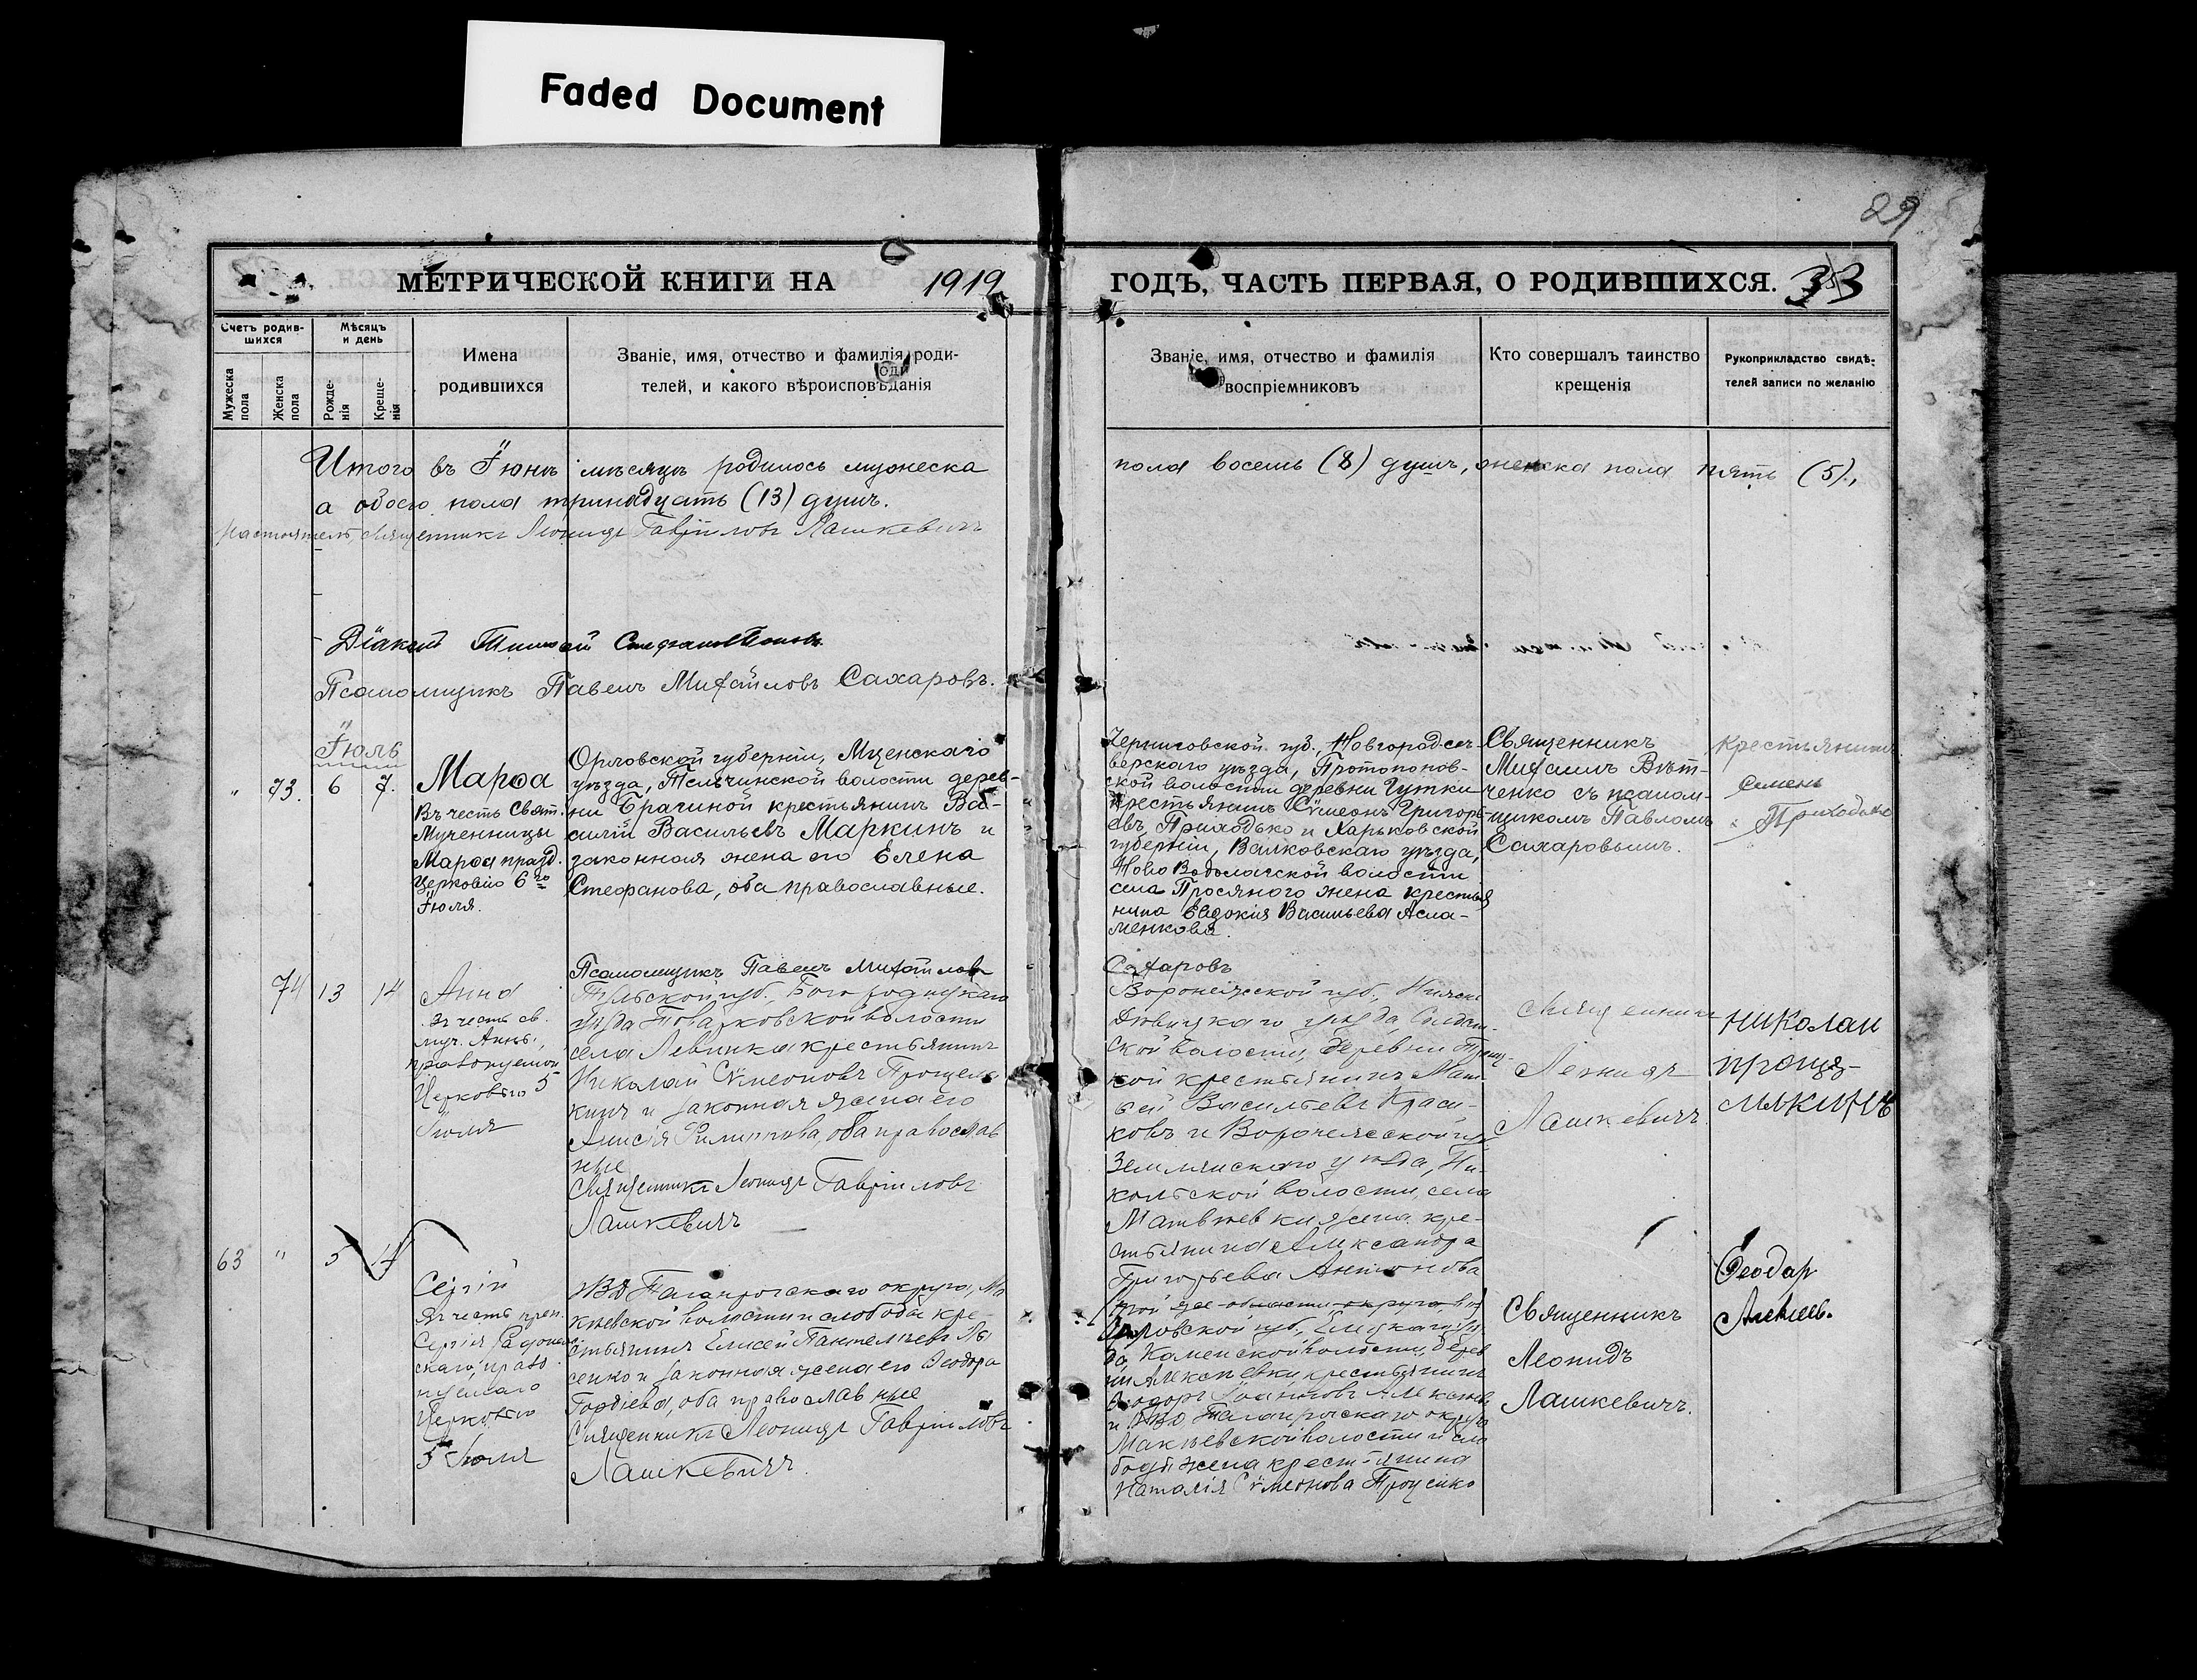 Faded Document
29
МЕТРИЧЕСКОЙ КНИГИ НА 1919
ГОДЪ, ЧАСТЬ ПЕРВАЯ, О РОДИВШИХСЯ. 33
Счетъ родив-
шихся
Мужеска
пола
Женска
пола
Мѣсяцъ
и день
Рожде-
нія
Креще-
нія
Имена
родившихся
Званіе, имя, отчество и фамилія роди-
телей, и какого вѣроисповѣданія
Званіе, имя, отчество и фамилія
воспріемниковъ
Кто совершалъ таинство
крещенія
Рукоприкладство свидѣ-
телей записи по желанію
Итого въ Іюнѣ мѣсяцѣ родилось мужеска
пола восемь (8) душъ, женска пола пять (5),
а обоего пола тринадцать (13) душъ.
Настоятель, священникъ Леонидъ Гавріиловъ Лашкевичъ
Діаконъ Тимофей Стефановъ
Псаломщикъ Павелъ Михаиловъ Сахаровъ.
Іюль
" 73. 6 7.
Марѳа
Въ честь Свят.
Мученницы
Марѳа празд.
Церковію 6го
Іюля.
Орловской губерніи, Мценскаго
уѣзда, Тельчинской волости дерев-
ни Брагиной крестьянинъ Ва-
силій Васильевъ Маркинъ и
законная жена его Елена
Стефанова, оба православные.
Псаломщикъ Павелъ Михаиловъ
Черниговской губ., Новгород-сѣ-
верскаго уѣзда, Протопопов-
ской волости деревни Гутки
крестьянинъ Сѵмеонъ Григорь-
евъ Приходько и Харьковской
губерніи, Валковскаго уѣзда,
Ново Водолагской волости
села Просяного жена крестья
нина Евдокія Васильева Асла-
менкова.
Сахаровъ
Священникъ
Михаилъ Вѣт-
ченко съ псалом-
щикомъ Павломъ
Сахаровымъ.
Крестьянинъ
Семенъ
Приходько
74 13 14
Анна
Въ честь св.
муч. Анны,
празднуемой
Церковью 5
Іюля
Тульской губ., Богородицкаго
уѣзда Товарковской волости
села Левинка крестьянинъ
Николай Сѵмеоновъ Прощелы
кинъ и законная жена его
Анисія Филиппова, оба православ
ные
Священникъ Леонидъ Гавріиловъ
Лашкевичъ
Воронежской губ., Нижне
Дѣвицкаго уѣзда, Солдат-
ской волости, деревни
кой крестьянинъ Мат
вей Васильевъ Краси-
ковъ и Воронежской губ.
Землянскаго уѣзда, Ни-
кольской волости, села
Матвѣевки жена кре-
стьянина Александра
Григорьева Антонова
Священникъ
Леонидъ
Лашкевичъ
николаи
проще-
лыкинъ
63 " 5 14
Сергій
Въ честь преп.
Сергія Радонеж
скаго, празд
нуемаго
Церковью
5 Іюля
ОВД Таганрогскаго округа, Ма
кѣевской волости и слободы кре-
стьянинъ Елисей Пантелѣевъ
сенко и законная жена его Ѳеодора
Гордіева, оба православные
Священникъ Леонидъ Гавріиловъ
Лашкевичъ
той же области округа
Орловской губ., Елецкаго уѣз
да, Каменской волости, дерев
ни Алексѣевки крестьянинъ
Ѳеодоръ Іоанновъ Алексѣевъ
и ОВД Таганрогскаго округа
Макѣевской волости и сло
боды жена крестьянина
Наталія Сѵмеонова Проценко
Священникъ
Леонидъ
Лашкевичъ.
Ѳеодар
Алексѣев.